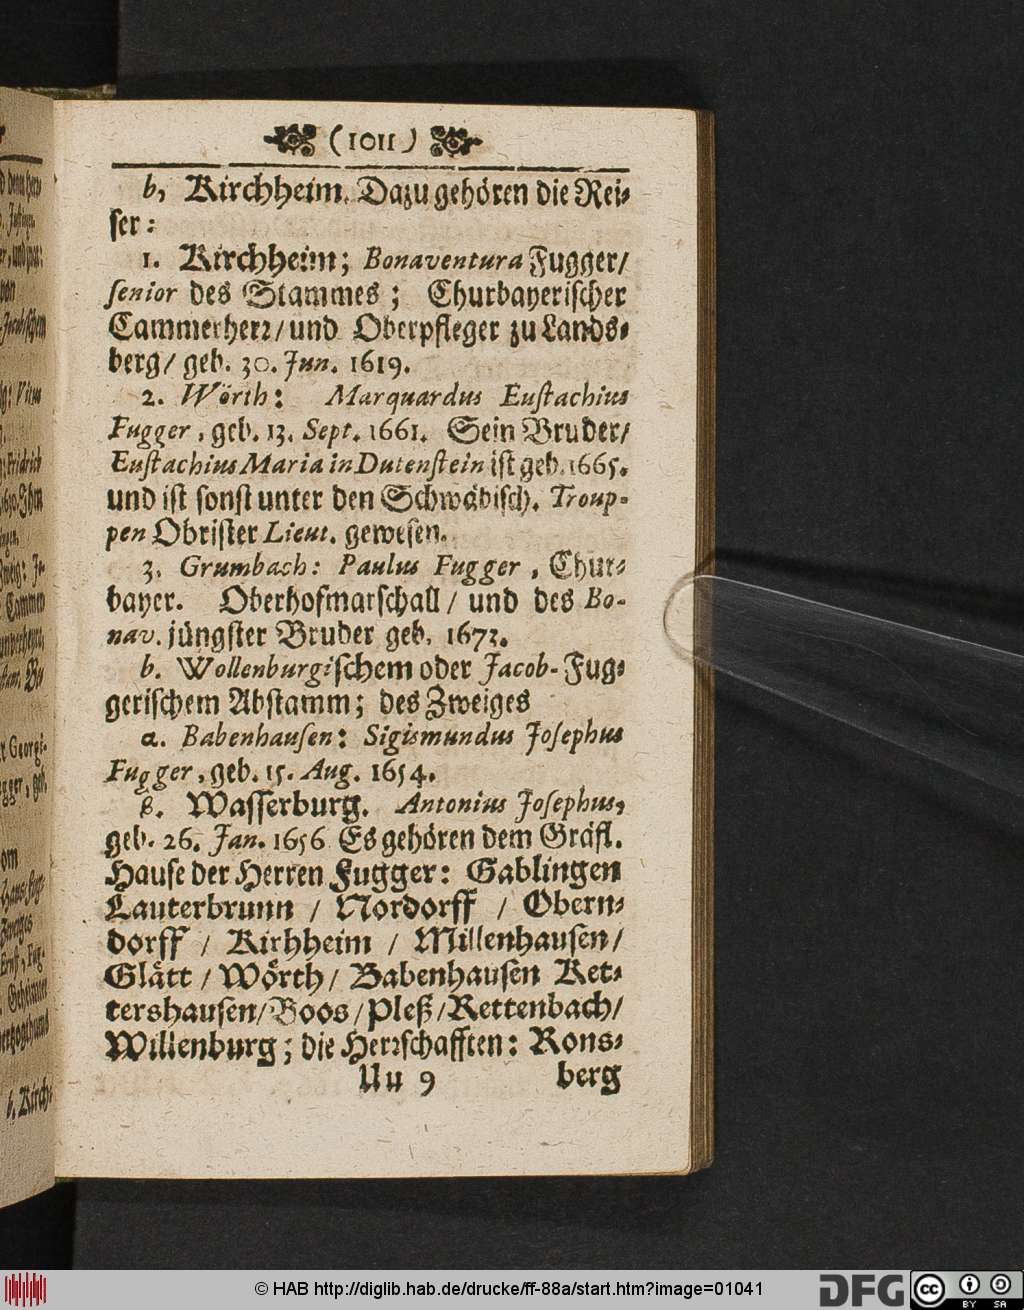 ( 1011 )
b, Kirchheim. Dazu gehören die Rei-
ser:
1. Kirchheim; Bonaventura Fugger/
senior des Stammes; Churbayerischer
Cammerherr/ und Oberpfleger zu Lands-
berg/ geb. 30. Jun. 1619.
2. Wörth: Marquardus Eustachius
Fugger, geb. 13. Sept. 1661. Sein Bruder/
Eustachius Maria in Dutenstein ist geb. 1665.
und ist sonst unter den Schwäbisch. Troup-
pen Obrister Lieut. gewesen.
3. Grumbach: Paulus Fugger, Chur-
bayer. Oberhofmarschall/ und des Bo-
nav. jüngster Bruder geb. 1673.
b. Wollenburgischem oder Jacob-Fug-
gerischem Abstamm; des Zweiges
a. Babenhausen: Sigismundus Josephus
Fugger, geb. 15. Aug. 1654.
ß. Wasserburg. Antonius Josephus,
geb. 26. Jan. 1656 Es gehören dem Gräfl.
Hause der Herren Fugger: Gablingen
Lauterbrunn / Nordorff / Obern-
dorff / Kirhheim / Millenhausen/
Glätt / Wörth/ Babenhausen Ket-
tershausen/ Boos/ Pleß/ Rettenbach/
Willenburg; die Herrschafften: Rons-
Uu 9 berg
© HAB http://diglib.hab.de/drucke/ff-88a/start.htm?image=01041
DFG cc BY SA